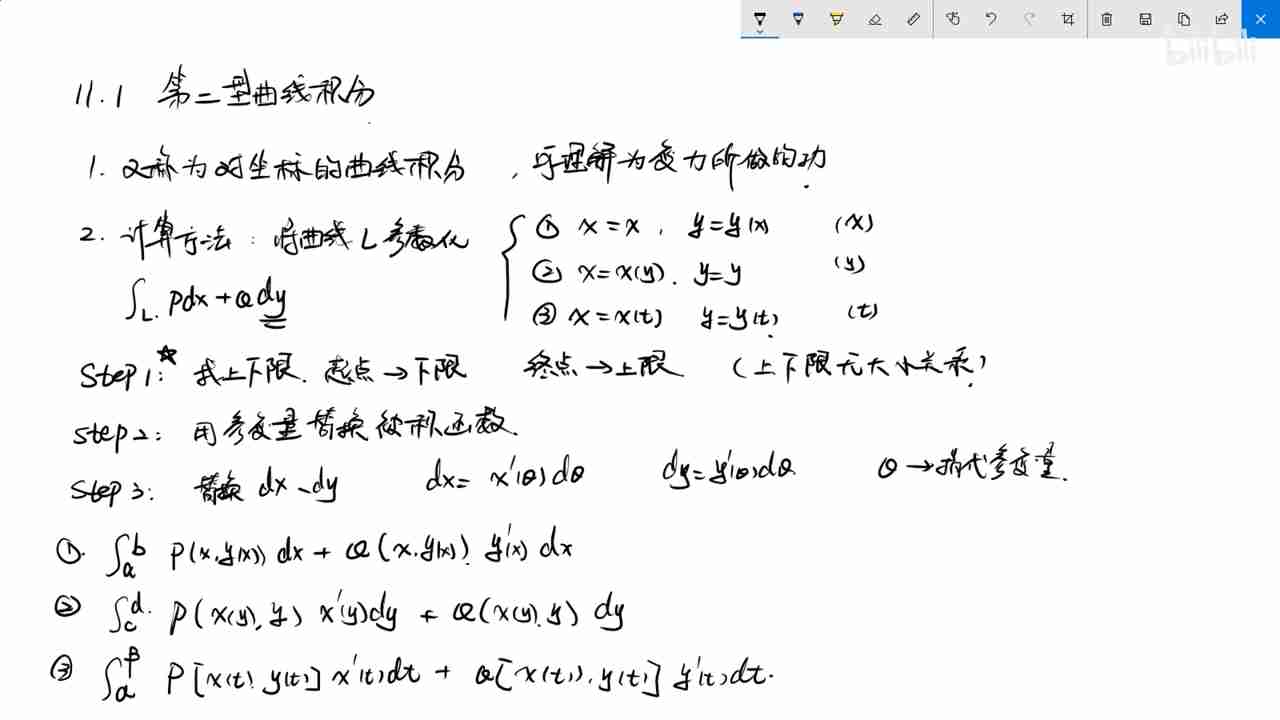 bilibili
11.1 第二型曲线积分
1. 又称为对坐标的曲线积分，可理解为变力所做的功.
2. 计算方法：将曲线L参数化 ① x=x, y=y(x) (x)
② x=x(y). y=y (y)
∫_L. Pdx+Qdy ③ x=x(t) y=y(t). (t)
Step1:★ 找上下限. 起点→下限 终点→上限 (上下限无大小关系)
Step2: 用参变量替换被积函数.
Step3: 替换dx、dy dx=x'(θ)dθ dy=y'(θ)dθ θ→指代参变量.
①. ∫_a^b P(x,y(x))dx+Q(x,y(x)).y'(x)dx
② ∫_c^d. P(x(y),y)x'(y)dy+Q(x(y),y)dy
③ ∫_α^β P[x(t),y(t)]x'(t)dt+Q[x(t),y(t)]y'(t)dt.